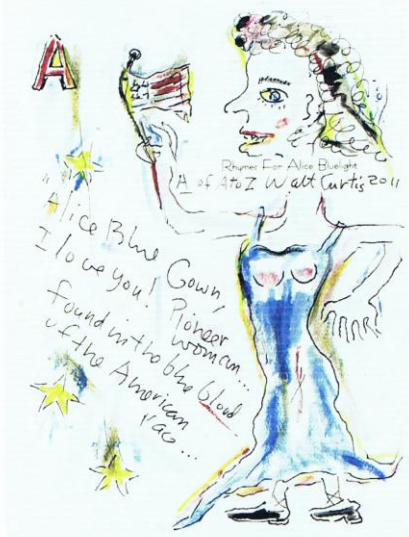 A
Rhymes For Alice Bluelight
A of A to Z Walt Curtis 2011
Alice Blue Gown,
I love you! Pioneer
woman...
found in the blue blood
of the American